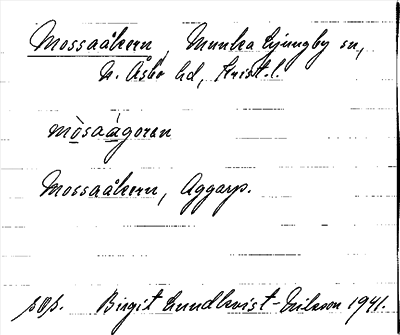 Mossaåkern, Munka Ljungby sn,
N. Åsbo hd, Krist. l.
mòsaágoran
Mossaåkern, Aggarp.
sop. Birgit Lundkvist-Nilsson 1941.